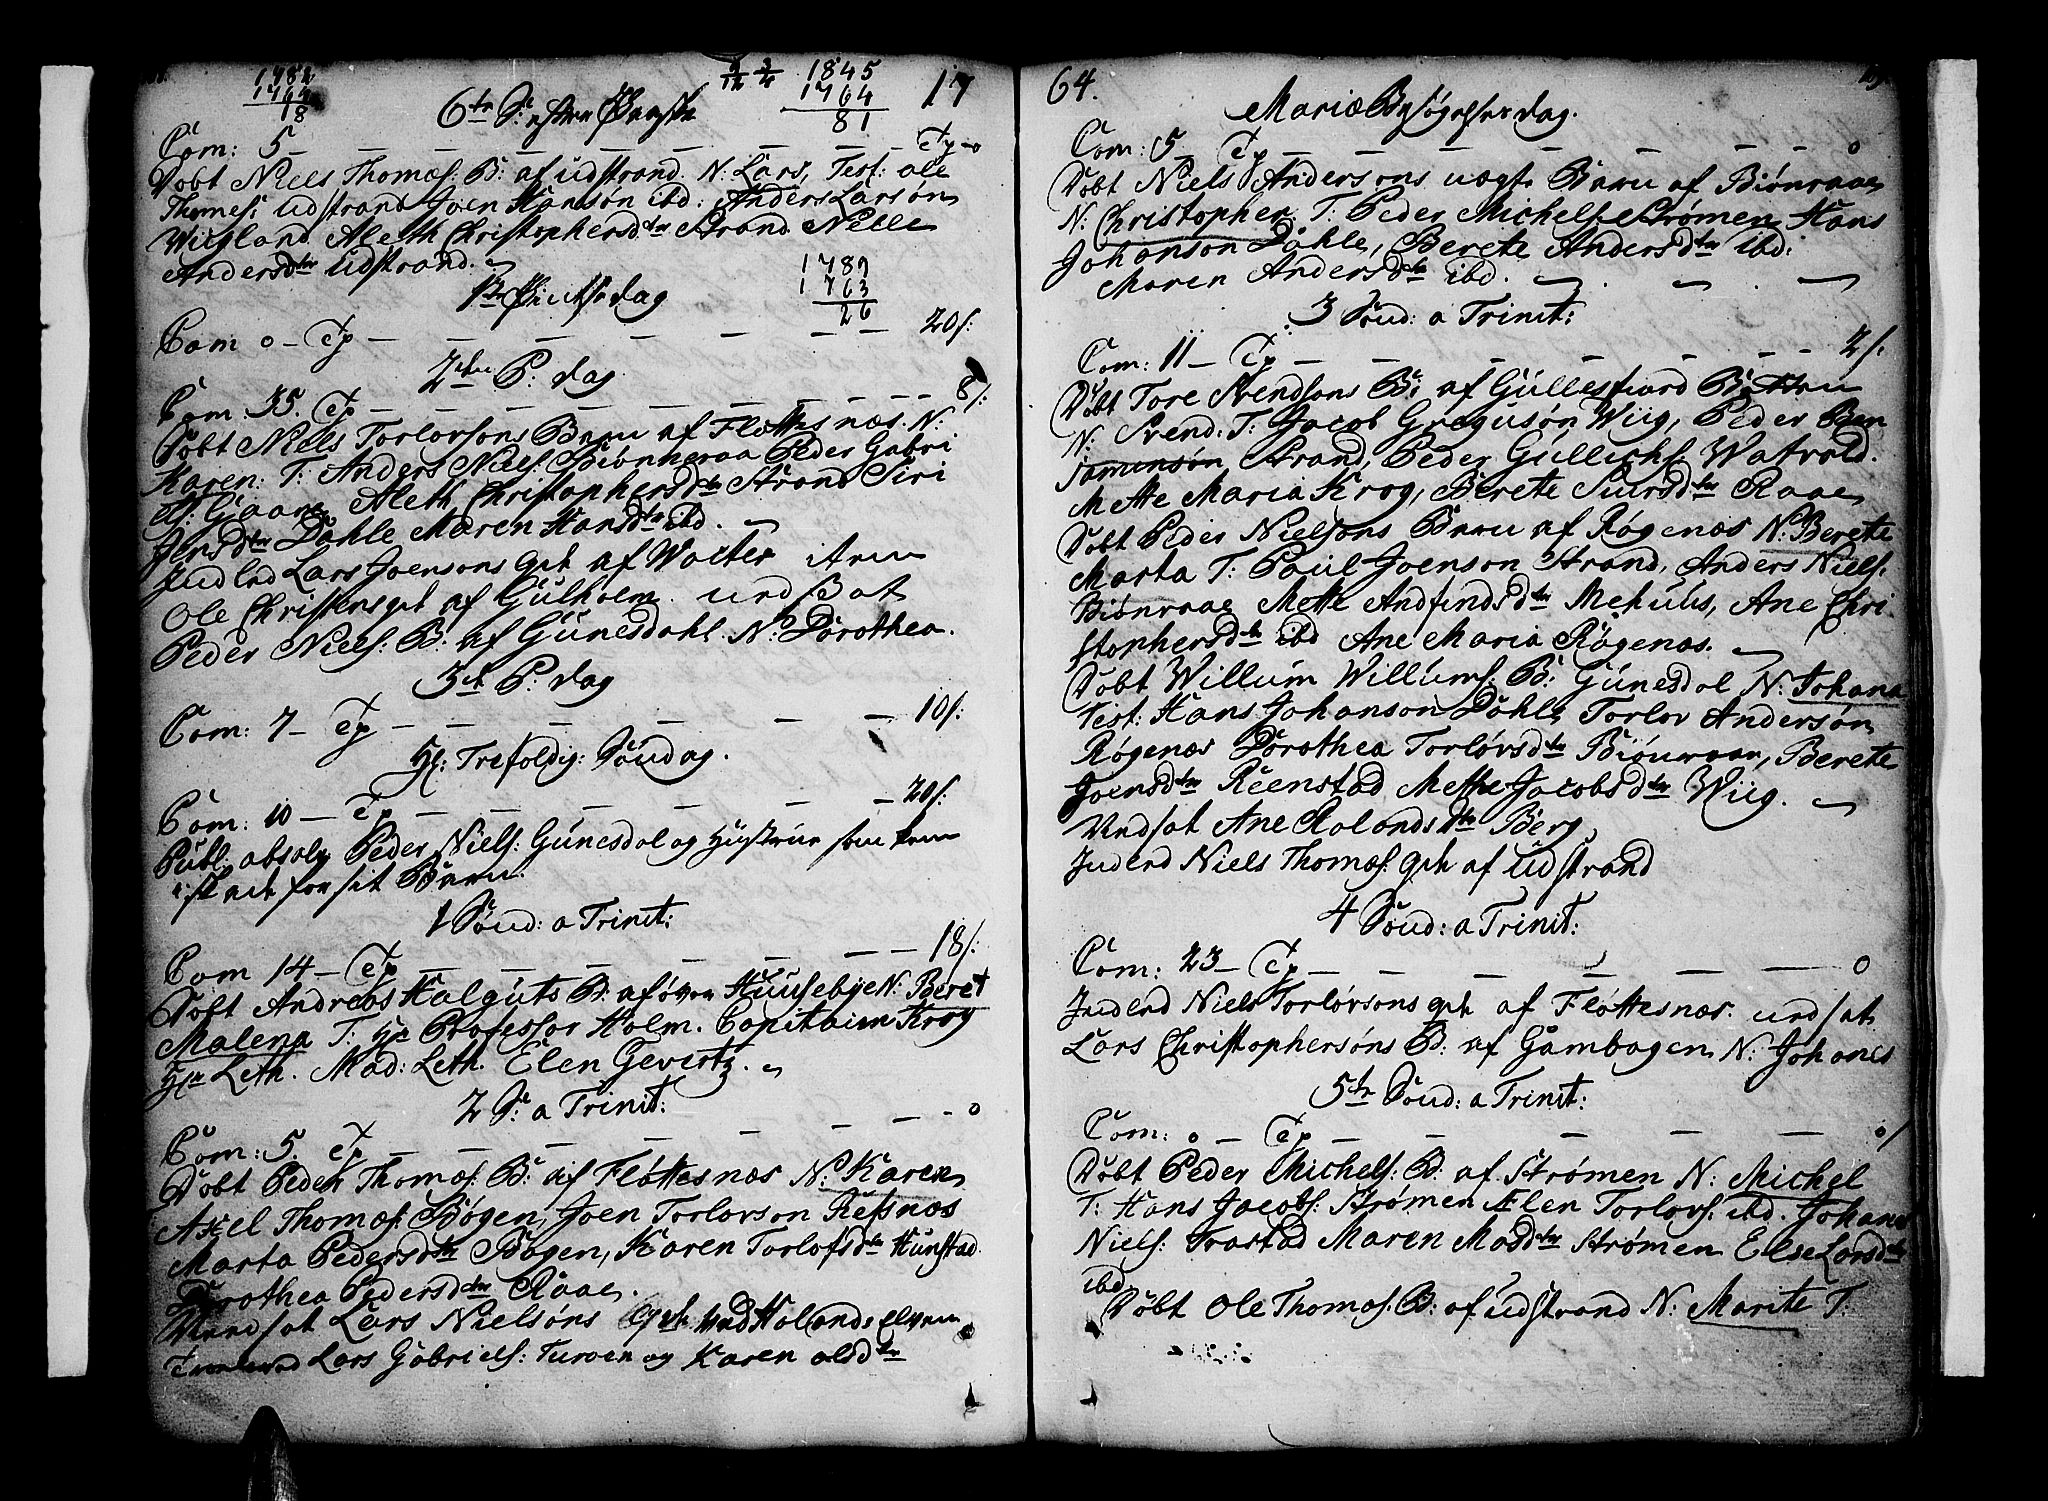 1782 1845 17
1764 1764
18 81
6te S: efter Paaske
Com: 5 — — — — — — — — Tp — 0
Döbt Niels Thomæs: B: af Udstrand. N: Lars, Test: Ole
Thomes: Udstrand Joen Hansön ibd. Anders Larsön
Wiigland Aleth Christophersdtr Strand Nelle
Andersdtr Udstrand.
1789
1763
26
1te Pintsedag
Com 0 — Tp — — — — — — — 20 s:
2den P: dag
Com 35. Tp — — — — — — — 8 s:
Döbt Niels Torlorsons Barn af Flottesnæs. N:
Karen. T: Anders Niels: Biönheraa Peder Gabri
els: Gaare Aleth Christophersdtr Strand Siri
Jensdtr Dahle Maren Hansdtr ibd.
Indled Lars Joensons qvt af Walter item
Ole Christensqvt af Gulholm. undsat
Peder Niels: B: af Gunesdahl. N: Dorothea.
3de P: dag
Com: 7 — Tp — — — — — — 10 s:
Hl: Trefoldig: Söndag.
Com: 10 — Tp — — — — — — 20 s:
Publ: absolv Peder Niels: Gunesdal og Hustrue som kom
for sit Barn.
1 Sönd: a Trinit:
Com 14 — Tp — — — — — — 18 s:
Döbt Andreas Halguts B: af öwer Huusebye N: Beret
Malena T: Hr Professor Holm. Capitain Krog
Hr Leth. Mad: Leth. Elen Gevertz.
2 S: a Trinit:
Com: 5. Tp — — — — — — 0
Döbt Peder Thomæs: B: af Flottesnæs N: Karen
Axel Thomæs: Bögen, Joen Torlovson Refsnæs
Marta Pedersdtr Bögen, Karen Torlofsdtr Hunstad.
Dorothea Pedersdtr Raae.
Undsat Lars Nielsöns qvt ved Holands elven
Troeloved Lars Gabriels: Turoen og Karen olsdtr
64.
Mariæ Besögelses dag.
Com: 5 — Tp — — — — — 0
Döbt Niels Andersons uægte Barn af Biönraae
N: Christopher T: Peder Michels: Strömen Hans
Johanson Dahle, Berete Andersdtr ibd:
Maren Andersdtr ibd.
3 Sönd: a Trinit:
Com: 11 — Tp — — — — — — 2 s:
Döbt Tore Svendsons B: af Gullesfiord
N: Svend: T: Jacob Gregusön Wiig, Peder Ben
jaminsön Strand, Peder Gullichs: Watvold.
Mette Maria Krog, Berete Siursdtr Raae
Döbt Peder Nielsons Barn af Rögenæs N: Berete
Marta T: Paul Joenson Strand, Anders Niels:
Biönraae Mette Andfindsdtr Mehuus, Ane Chri
stophersdtr ibd Ane Maria Rögenæs.
Döbt Willum Willums: B: Gunesdal N: Johana
Test: Hans Johanson Dahle Torlov Andersön
Rögenæs Dorothea Torlovsdtr Biönraae, Berete
Joensdtr Reenstad Mette Jacobsdtr Wiig.
Undsat Ane Rolandsdtr Berg
Inled Niels Thomæs: qvt af Udstrand
4 Sönd: a Trinit:
Com: 23 — Tp — — — — — 0
Inled Niels Torlovsons qvt af Flottesnæs. undsat
Lars Christophersöns B: af Gambogen N: Johanes
5te Sönd: a Trinit:
Com: 0 — Tp — — — — — 0 s
Döbt Peder Michels: B: af Strömen N: Michel
T: Hans Jacobs: Strömen Elen Torlovs: ibd. Johanes
Niels: Trastad Maren Madsdtr Strömen Else Larsdtr
ibd
Döbt Ole Thomæs: B: af Udstrand N: Marite T: